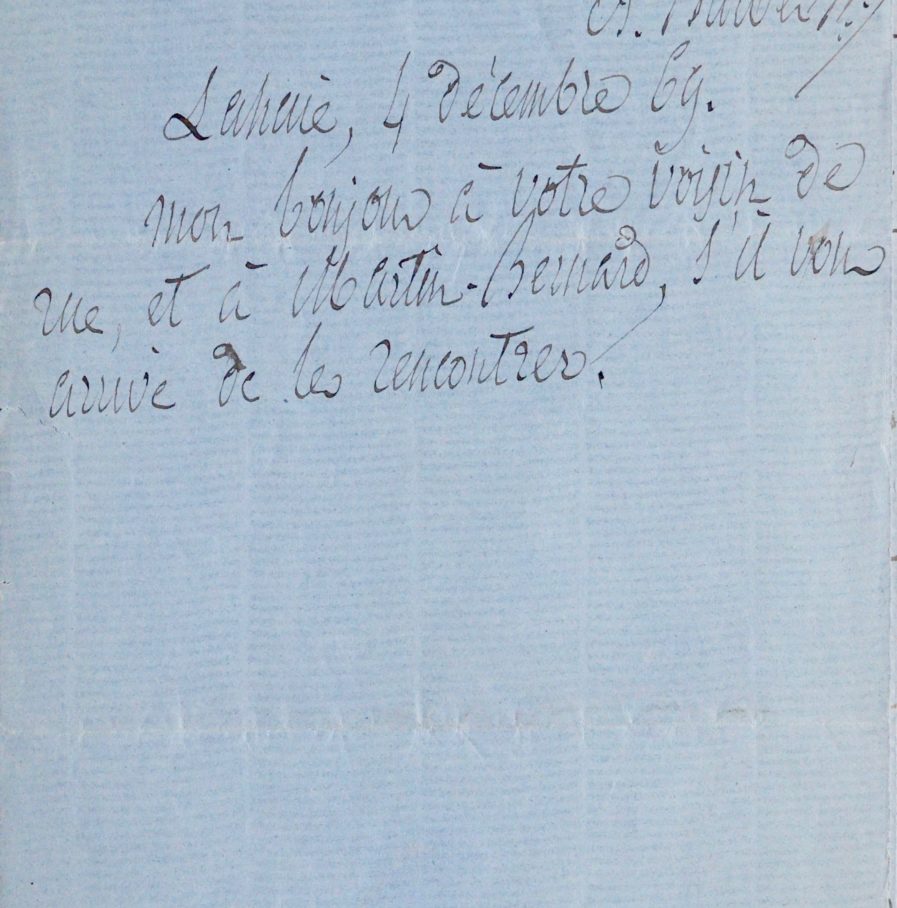 Lahaie, 4 décembre 69.
mon bonjour à votre voisin de
rue, et à Martin-Bernard, s'il vous
arrive de les rencontrer.